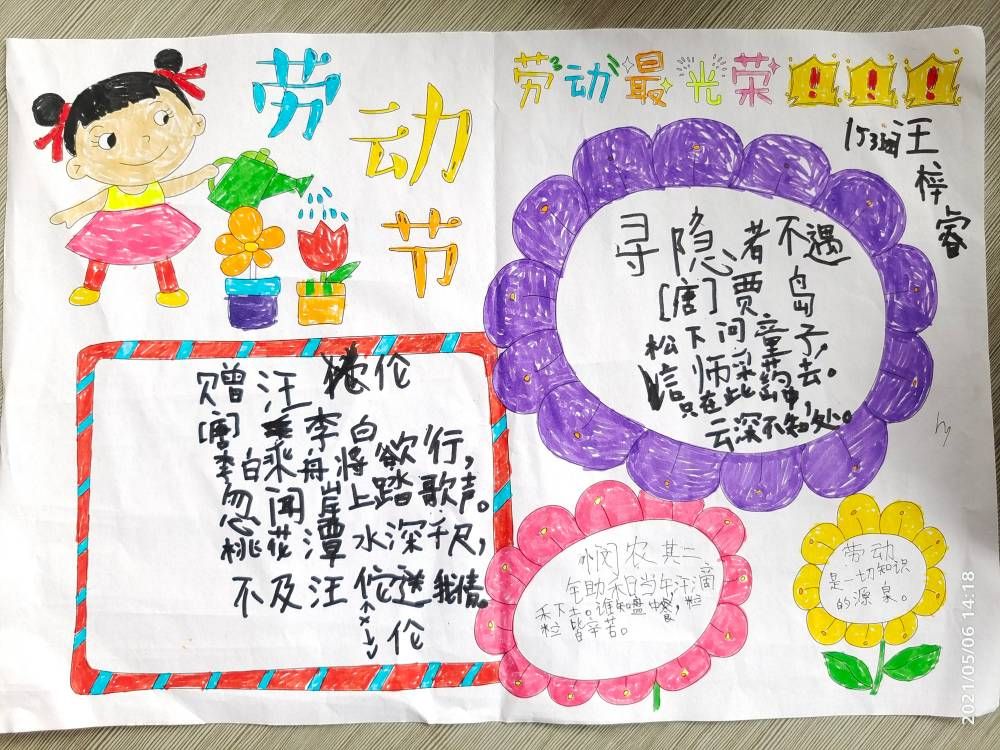 劳动节
劳动最光荣!!!
153班汪梓睿
寻隐者不遇
[唐]贾岛
松下问童子,
信师采药去。
只在此山中,
云深不知处。
赠汪伦
[唐]李白
李白乘舟将欲行,
忽闻岸上踏歌声。
桃花潭水深千尺,
不及汪伦送我情。
伦
悯农其二
年助禾日当午汗滴
禾下土。谁知盘中餐,粒
粒皆辛苦。
劳动
是一切知识
的源泉。
hg
2021/05/06 14:18